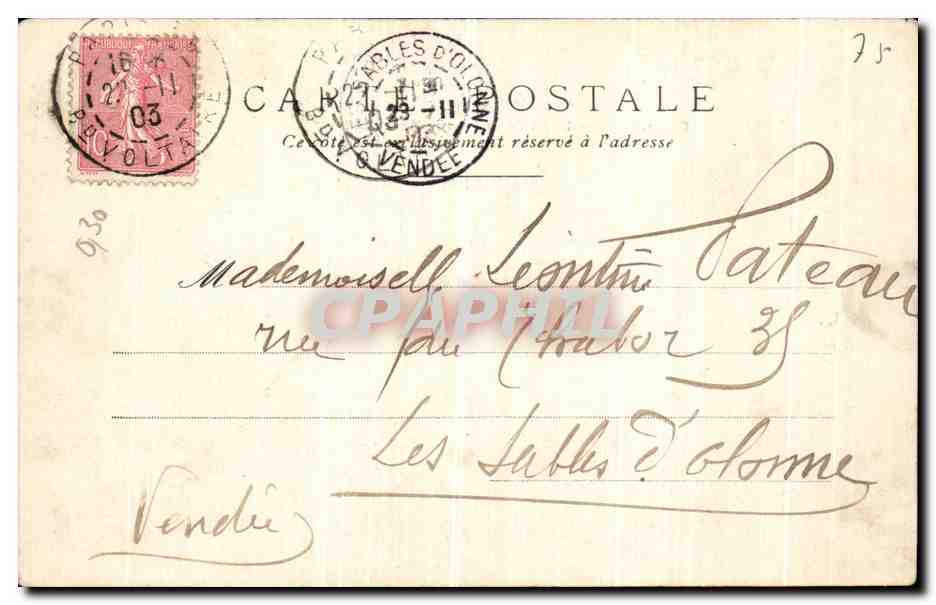 75
RÉPUBLIQUE FRANÇAISE
PARIS
16
27-11
03
BD VOLTAIRE
LES SABLES D'OLONNE
23-11
03
VENDÉE
CARTE POSTALE
Ce côté est exclusivement réservé à l'adresse
0,30
Mademoiselle Léontine Pateau
rue du Thabor 35
Les Sables d'olonne
Vendée
CPAPHIL